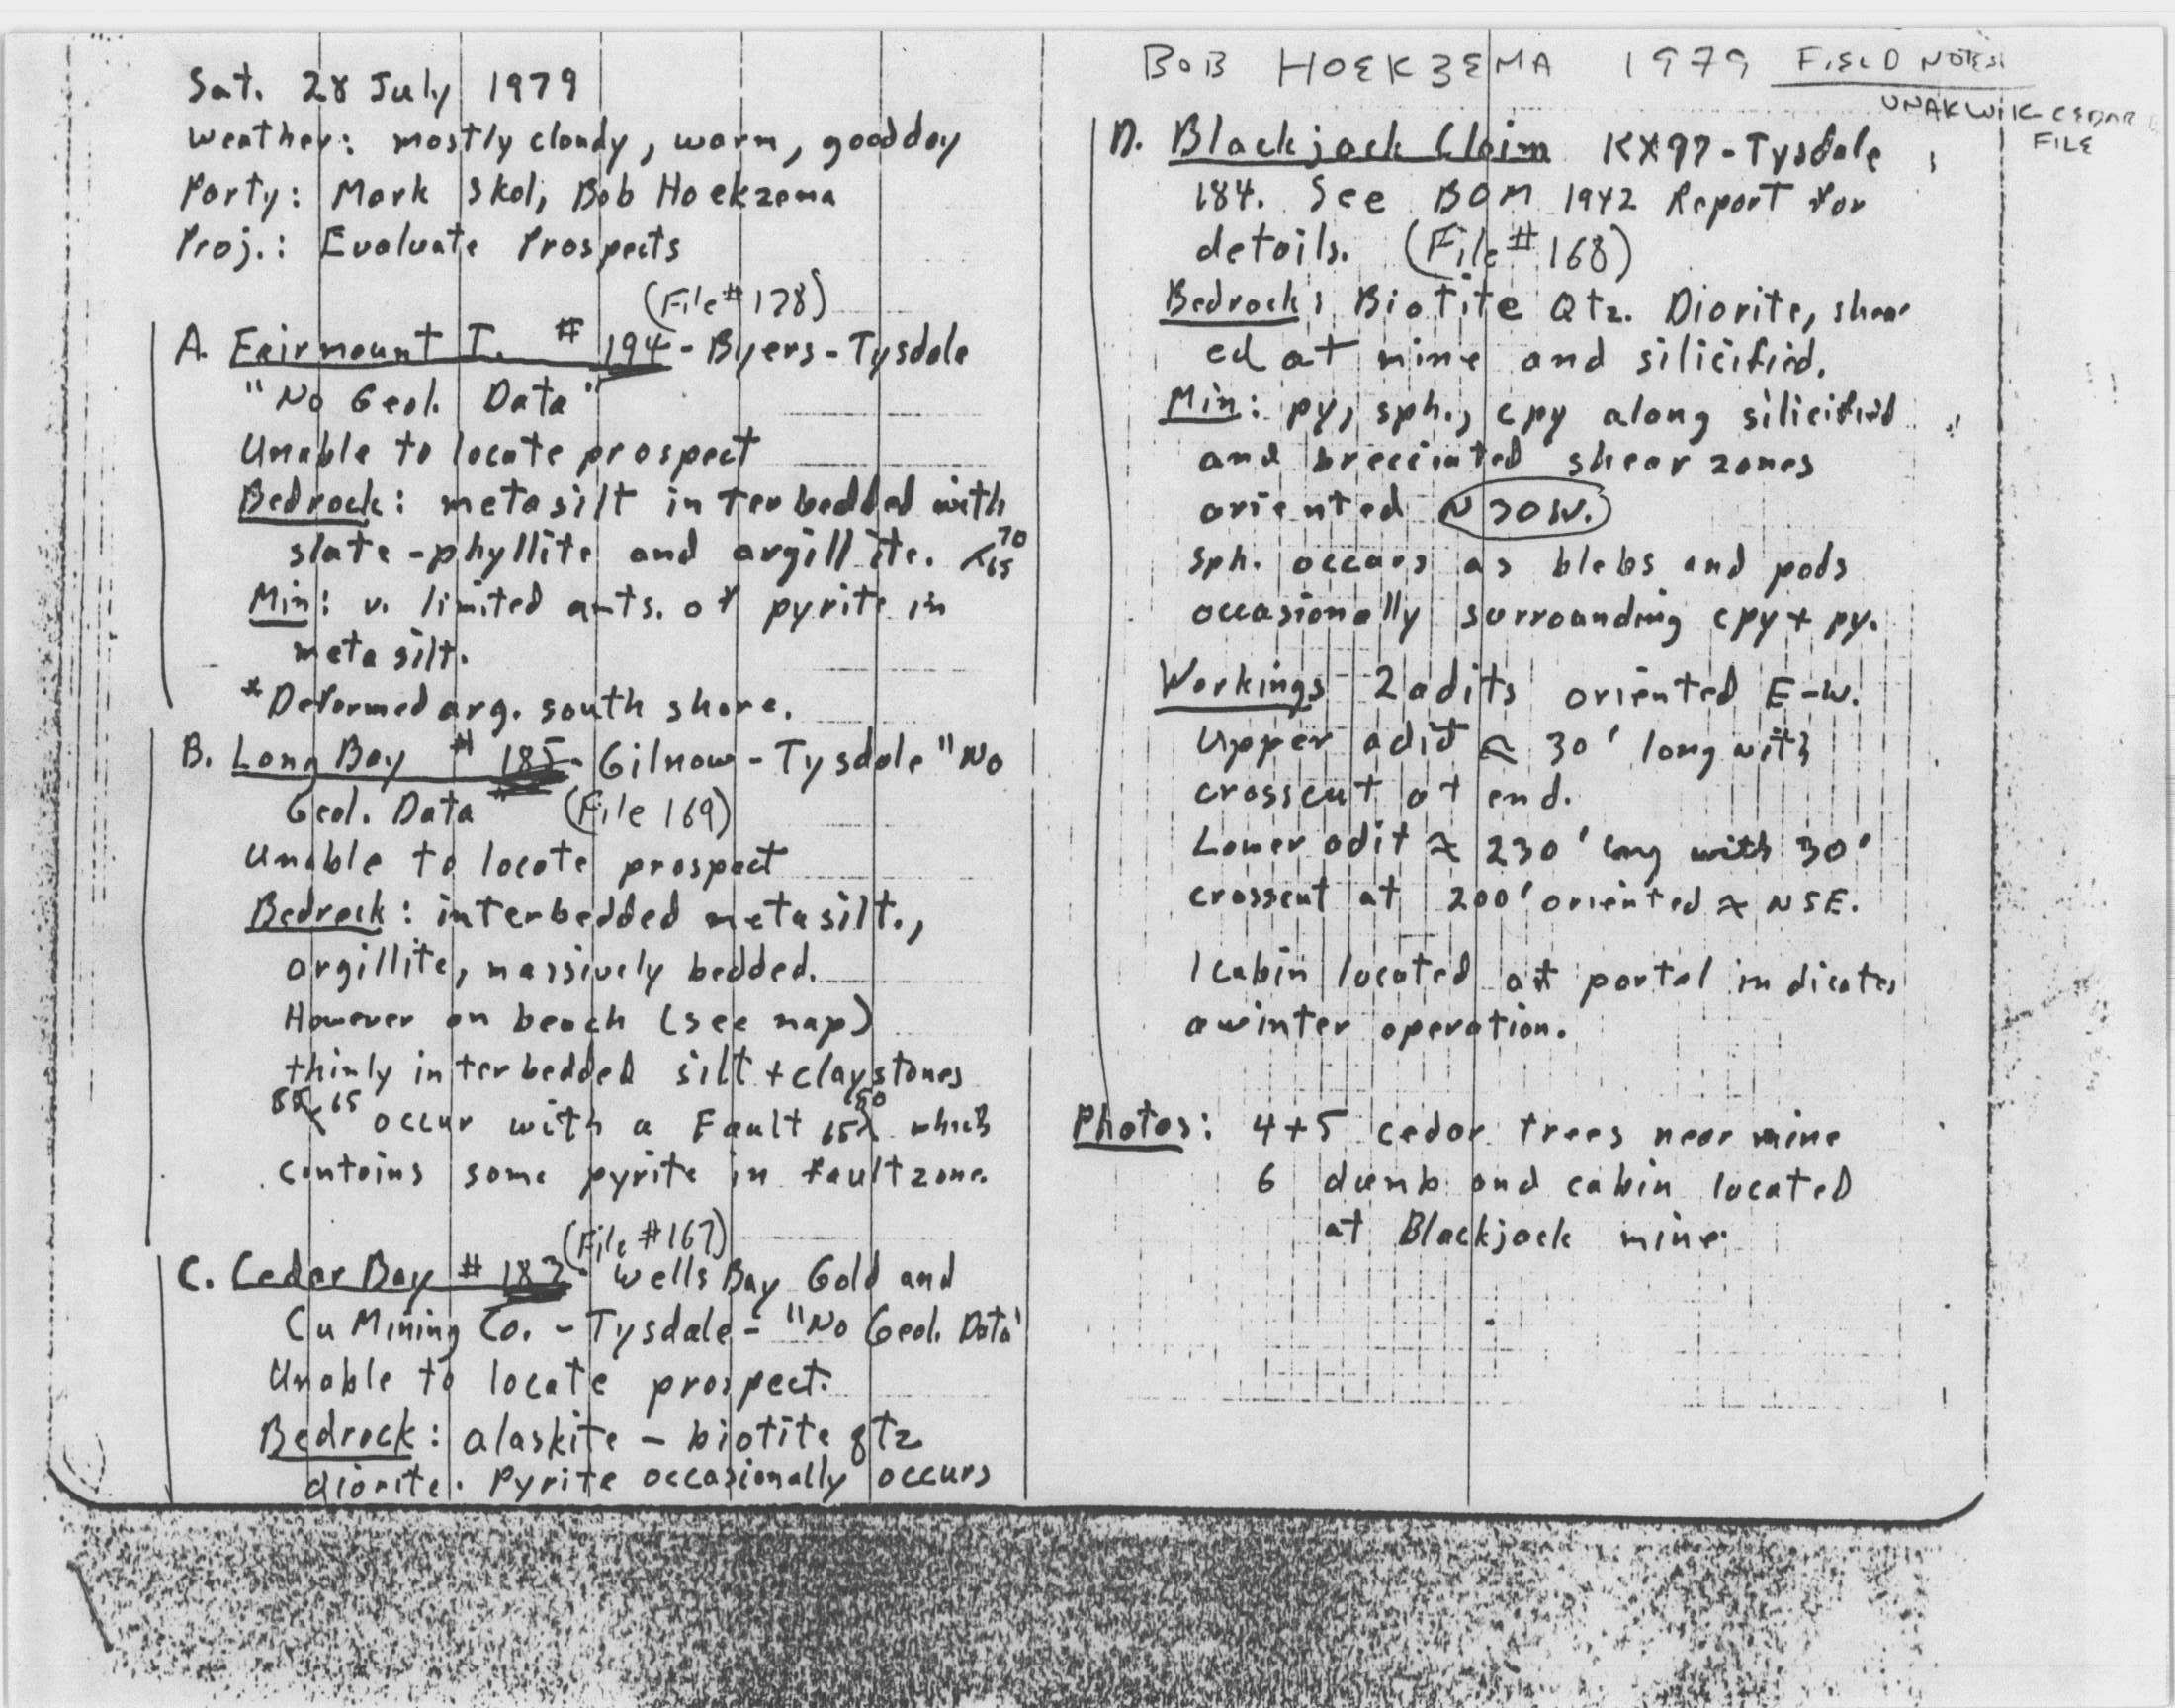 Sat. 28 July 1979
Weather: mostly cloudy, warm, good day
Party: Mark Skol, Bob Hoekzema
Proj.: Evaluate Prospects
(File # 178)
A. Fairmount I. # 194 - Byers - Tysdale
"No Geol. Data"
Unable to locate prospect
Bedrock: metasilt interbedded with
slate-phyllite and argillite. 70 65
Min: v. limited amts. of pyrite in
metasilt.
*Deformed arg. south shore.
B. Long Bay # 185 - Gilnow - Tysdale "No
Geol. Data" (File 169)
Unable to locate prospect
Bedrock: interbedded metasilt.,
argillite, massively bedded.
However on beach (see map)
thinly interbedded silt + claystones
65 occur with a Fault 65 which
contains some pyrite in fault zone.
(File #167)
C. Cedar Bay # 183 - Wells Bay Gold and
Cu Mining Co. - Tysdale - "No Geol. Data"
Unable to locate prospect.
Bedrock: alaskite - biotite qtz
diorite. Pyrite occasionally occurs
BOB HOEKZEMA 1979 FIELD NOTES
UNAKWIK-CEDAR
FILE
D. Blackjack Claim KX97 - Tysdale
184. See BOM 1942 Report for
details. (File # 168)
Bedrock: Biotite Qtz. Diorite, shear
ed at mine and silicified.
Min: py, sph., cpy along silicified
and brecciated shear zones
oriented N 30 W.
Sph. occurs as blebs and pods
occasionally surrounding cpy + py.
Workings 2 adits oriented E-W.
Upper adit ≈ 30' long with
crosscut at end.
Lower adit ≈ 230' long with 30'
crosscut at 200' oriented ≈ N5E.
1 cabin located at portal indicates
a winter operation.
Photos: 4+5 cedar trees near mine
6 dump and cabin located
at Blackjack mine.